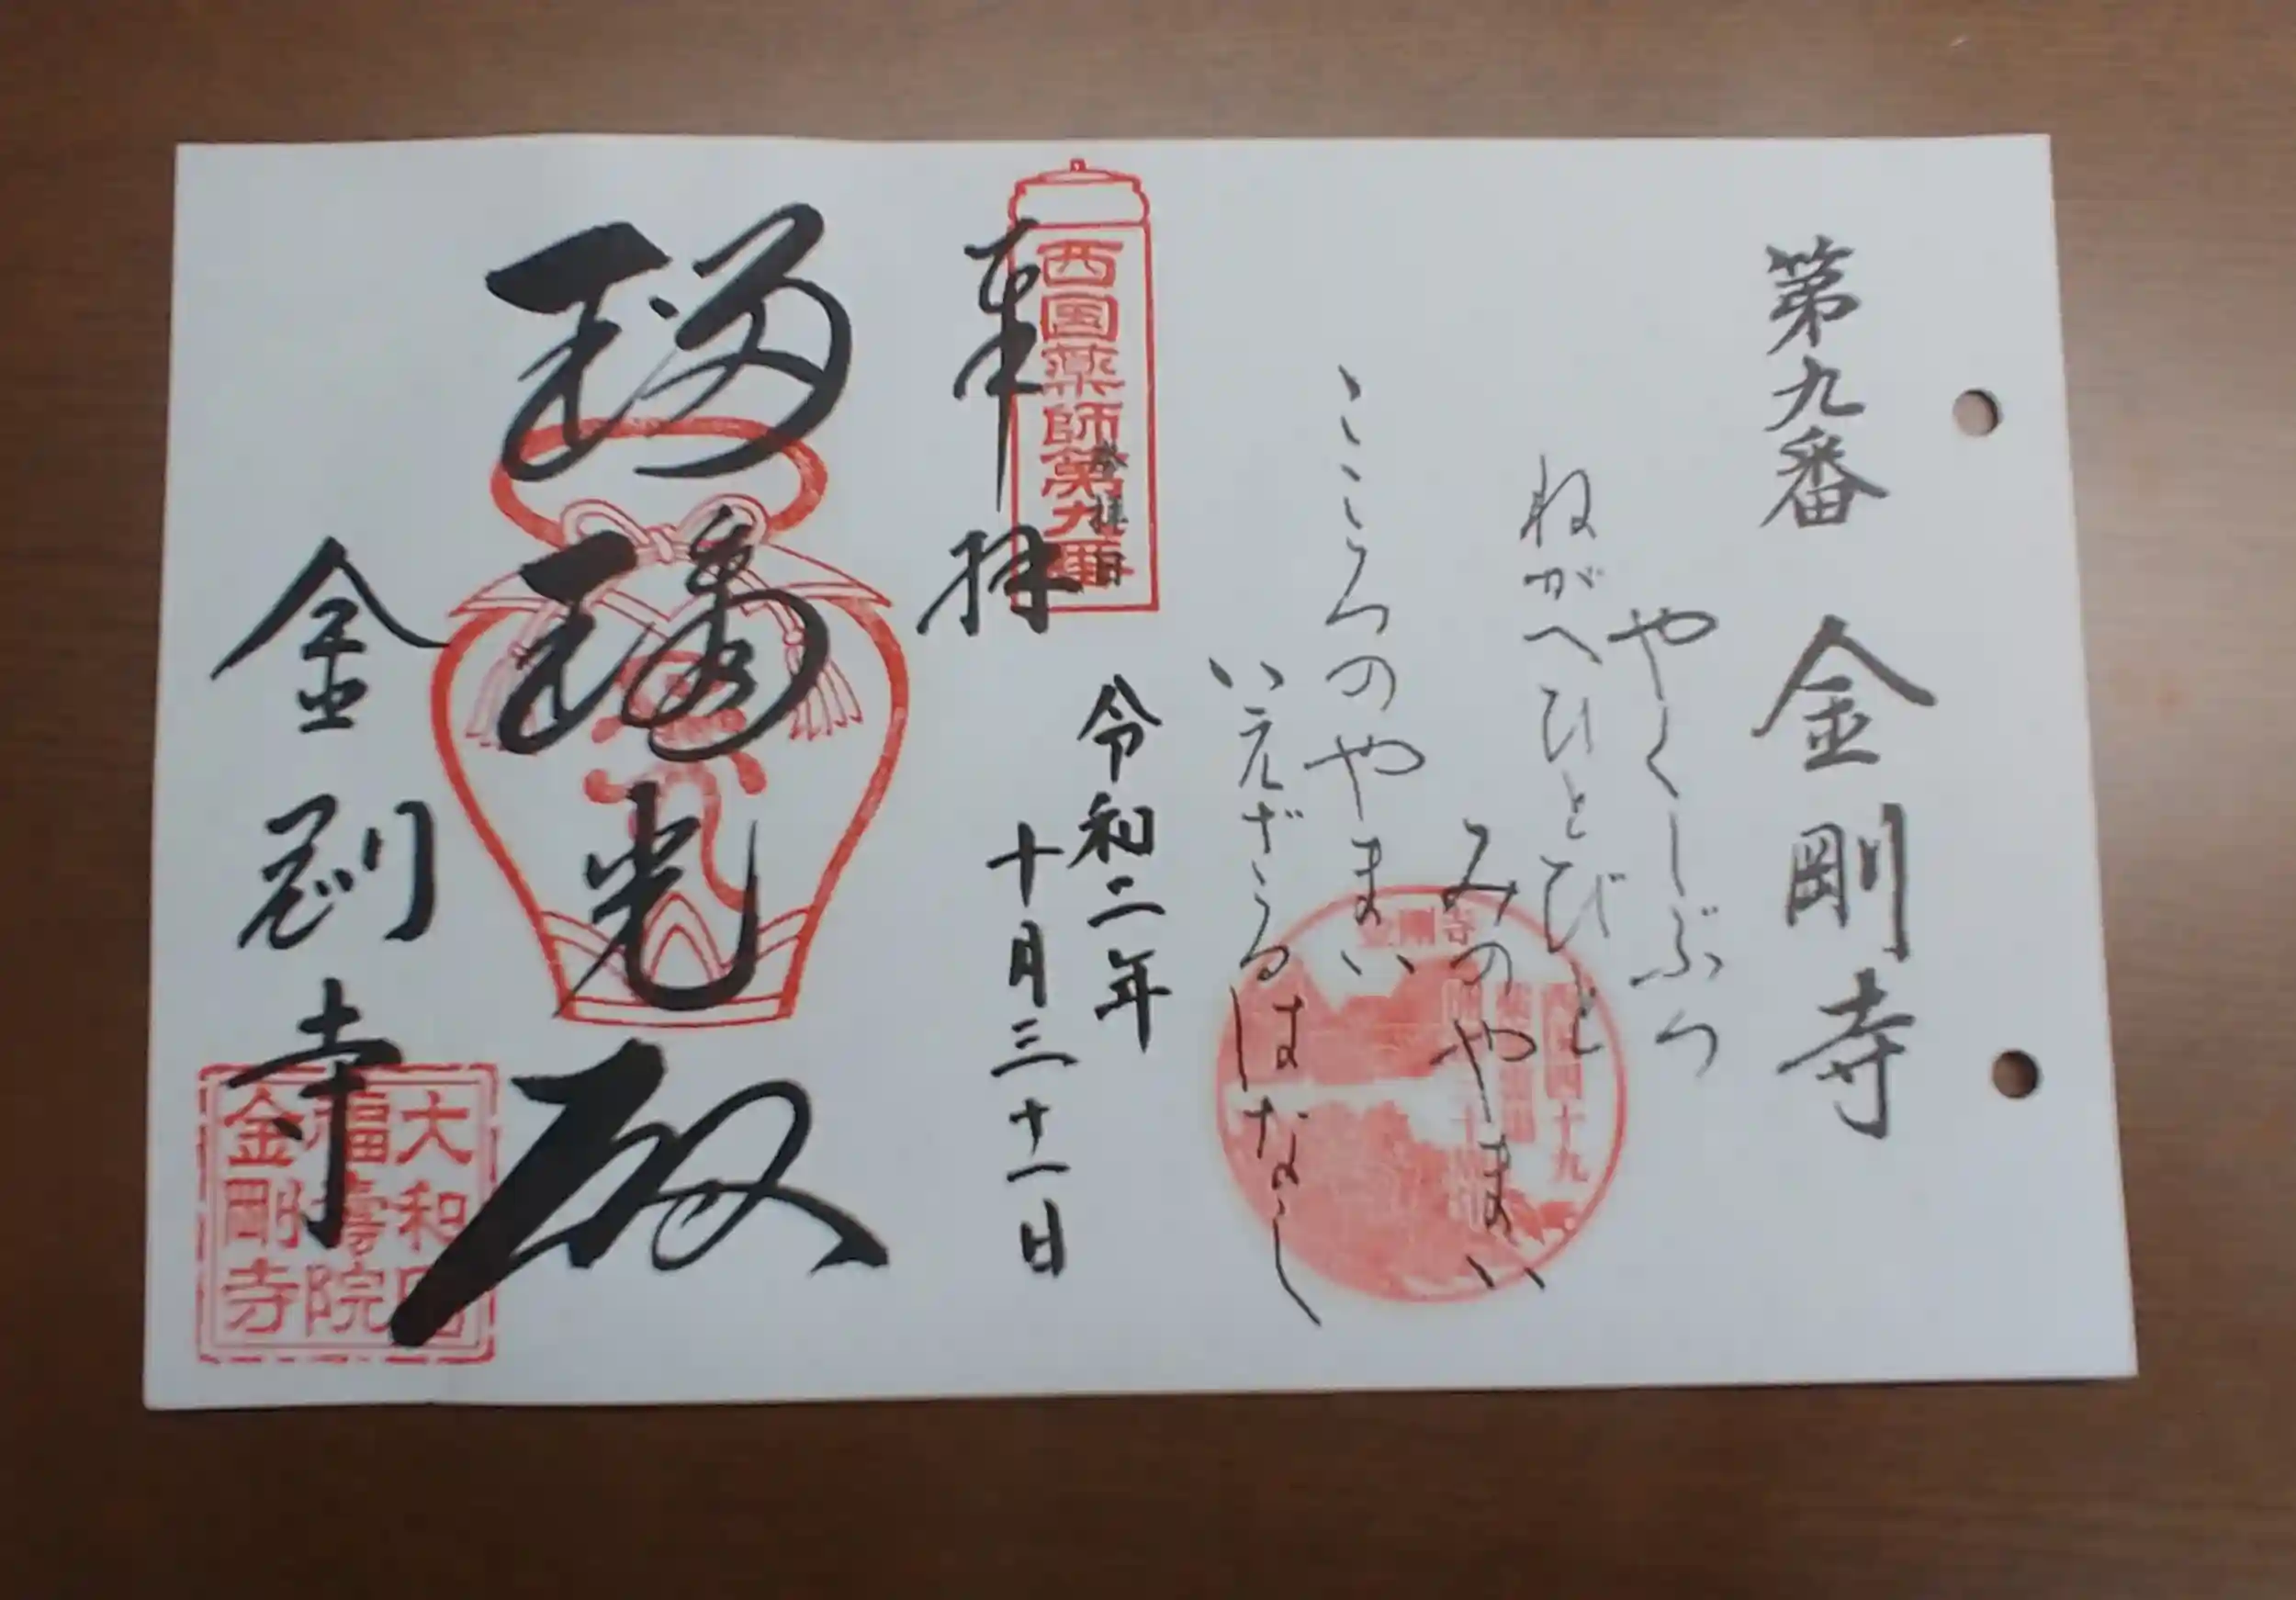 第九番 金剛寺
やくしぶつ
ねがへひとびと
みのやまい
こころのやまい
いえざるはなし
西国薬師第九番
参拝日
令和二年
十月三十一日
奉拝
瑠璃光殿
金剛寺
大和国
福壽院
金剛寺
金剛寺
西国四十九
薬師霊場